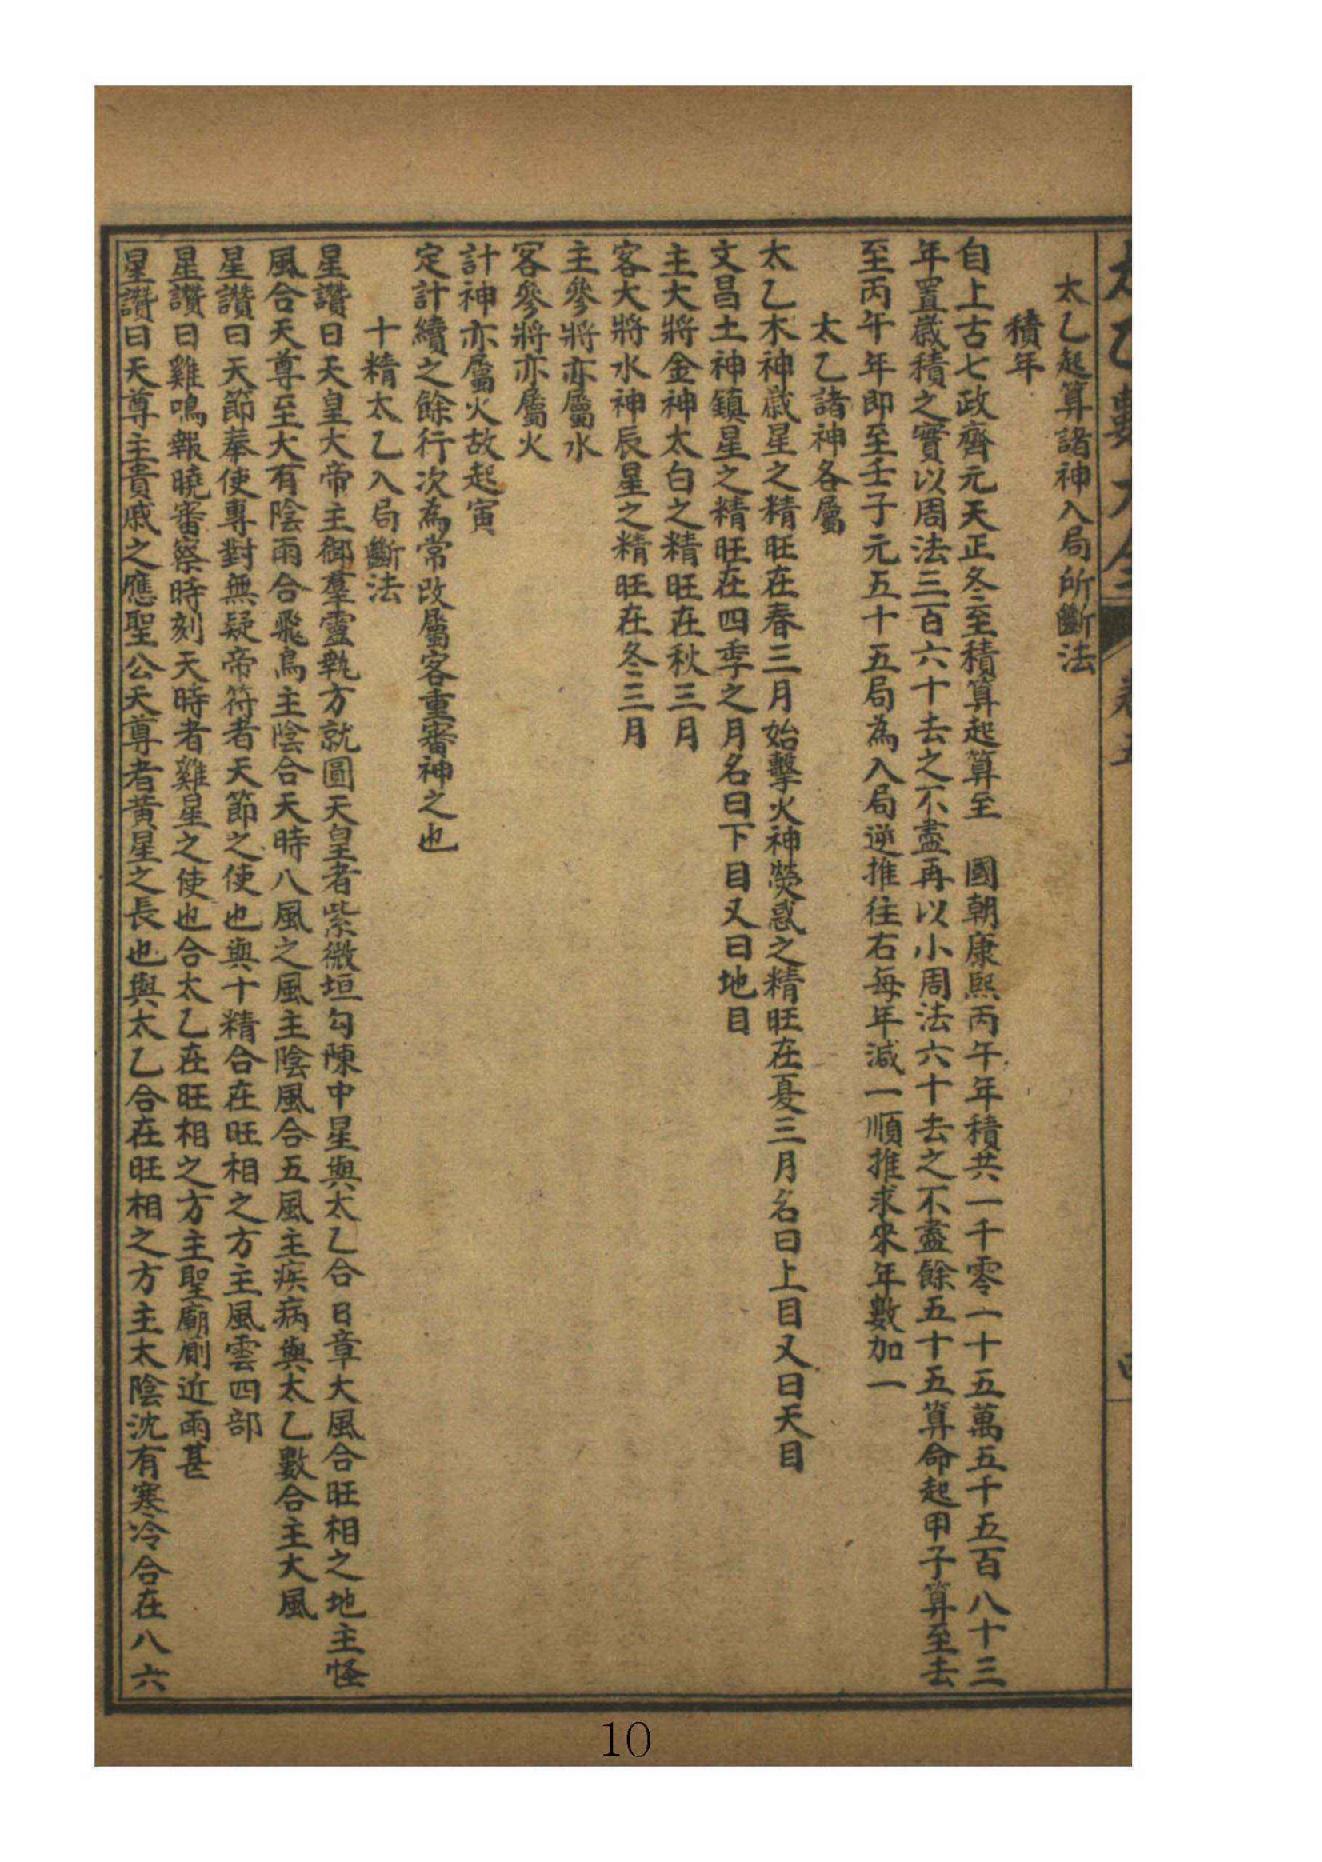 太乙數大全
卷五
太乙起算諸神入局所斷法
積年
自上古七政齊元天正冬至積算起算至　國朝康熙丙午年積共一千零一十五萬五千五百八十三
年置歲積之實以周法三百六十去之不盡再以小周法六十去之不盡餘五十五算命起甲子算至去
至丙午年即至壬子元五十五局為入局逆推往右每年減一順推求來年數加一
太乙諸神各屬
太乙木神歲星之精旺在春三月始擊火神熒惑之精旺在夏三月名曰上目又曰天目
文昌土神鎮星之精旺在四季之月名曰下目又曰地目
主大將金神太白之精旺在秋三月
客大將水神辰星之精旺在冬三月
主參將亦屬水
客參將亦屬火
計神亦屬火故起寅
定計續之餘行次為常改屬客重審神之也
十精太乙入局斷法
星讚曰天皇大帝主御羣靈執方就圓天皇者紫微垣勾陳中星與太乙合日章大風合旺相之地主怪
風合天尊至大有陰雨合飛鳥主陰合天時八風之風主陰風合五風主疾病與太乙數合主大風
星讚曰天節奉使專對無疑帝符者天節之使也與十精合在旺相之方主風雲四部
星讚曰雞鳴報曉審察時刻天時者雞星之使也合太乙在旺相之方主聖廟側近雨甚
星讚曰天尊主貴戚之應聖公天尊者黃星之長也與太乙合在旺相之方主太陰沈有寒冷合在八六
10